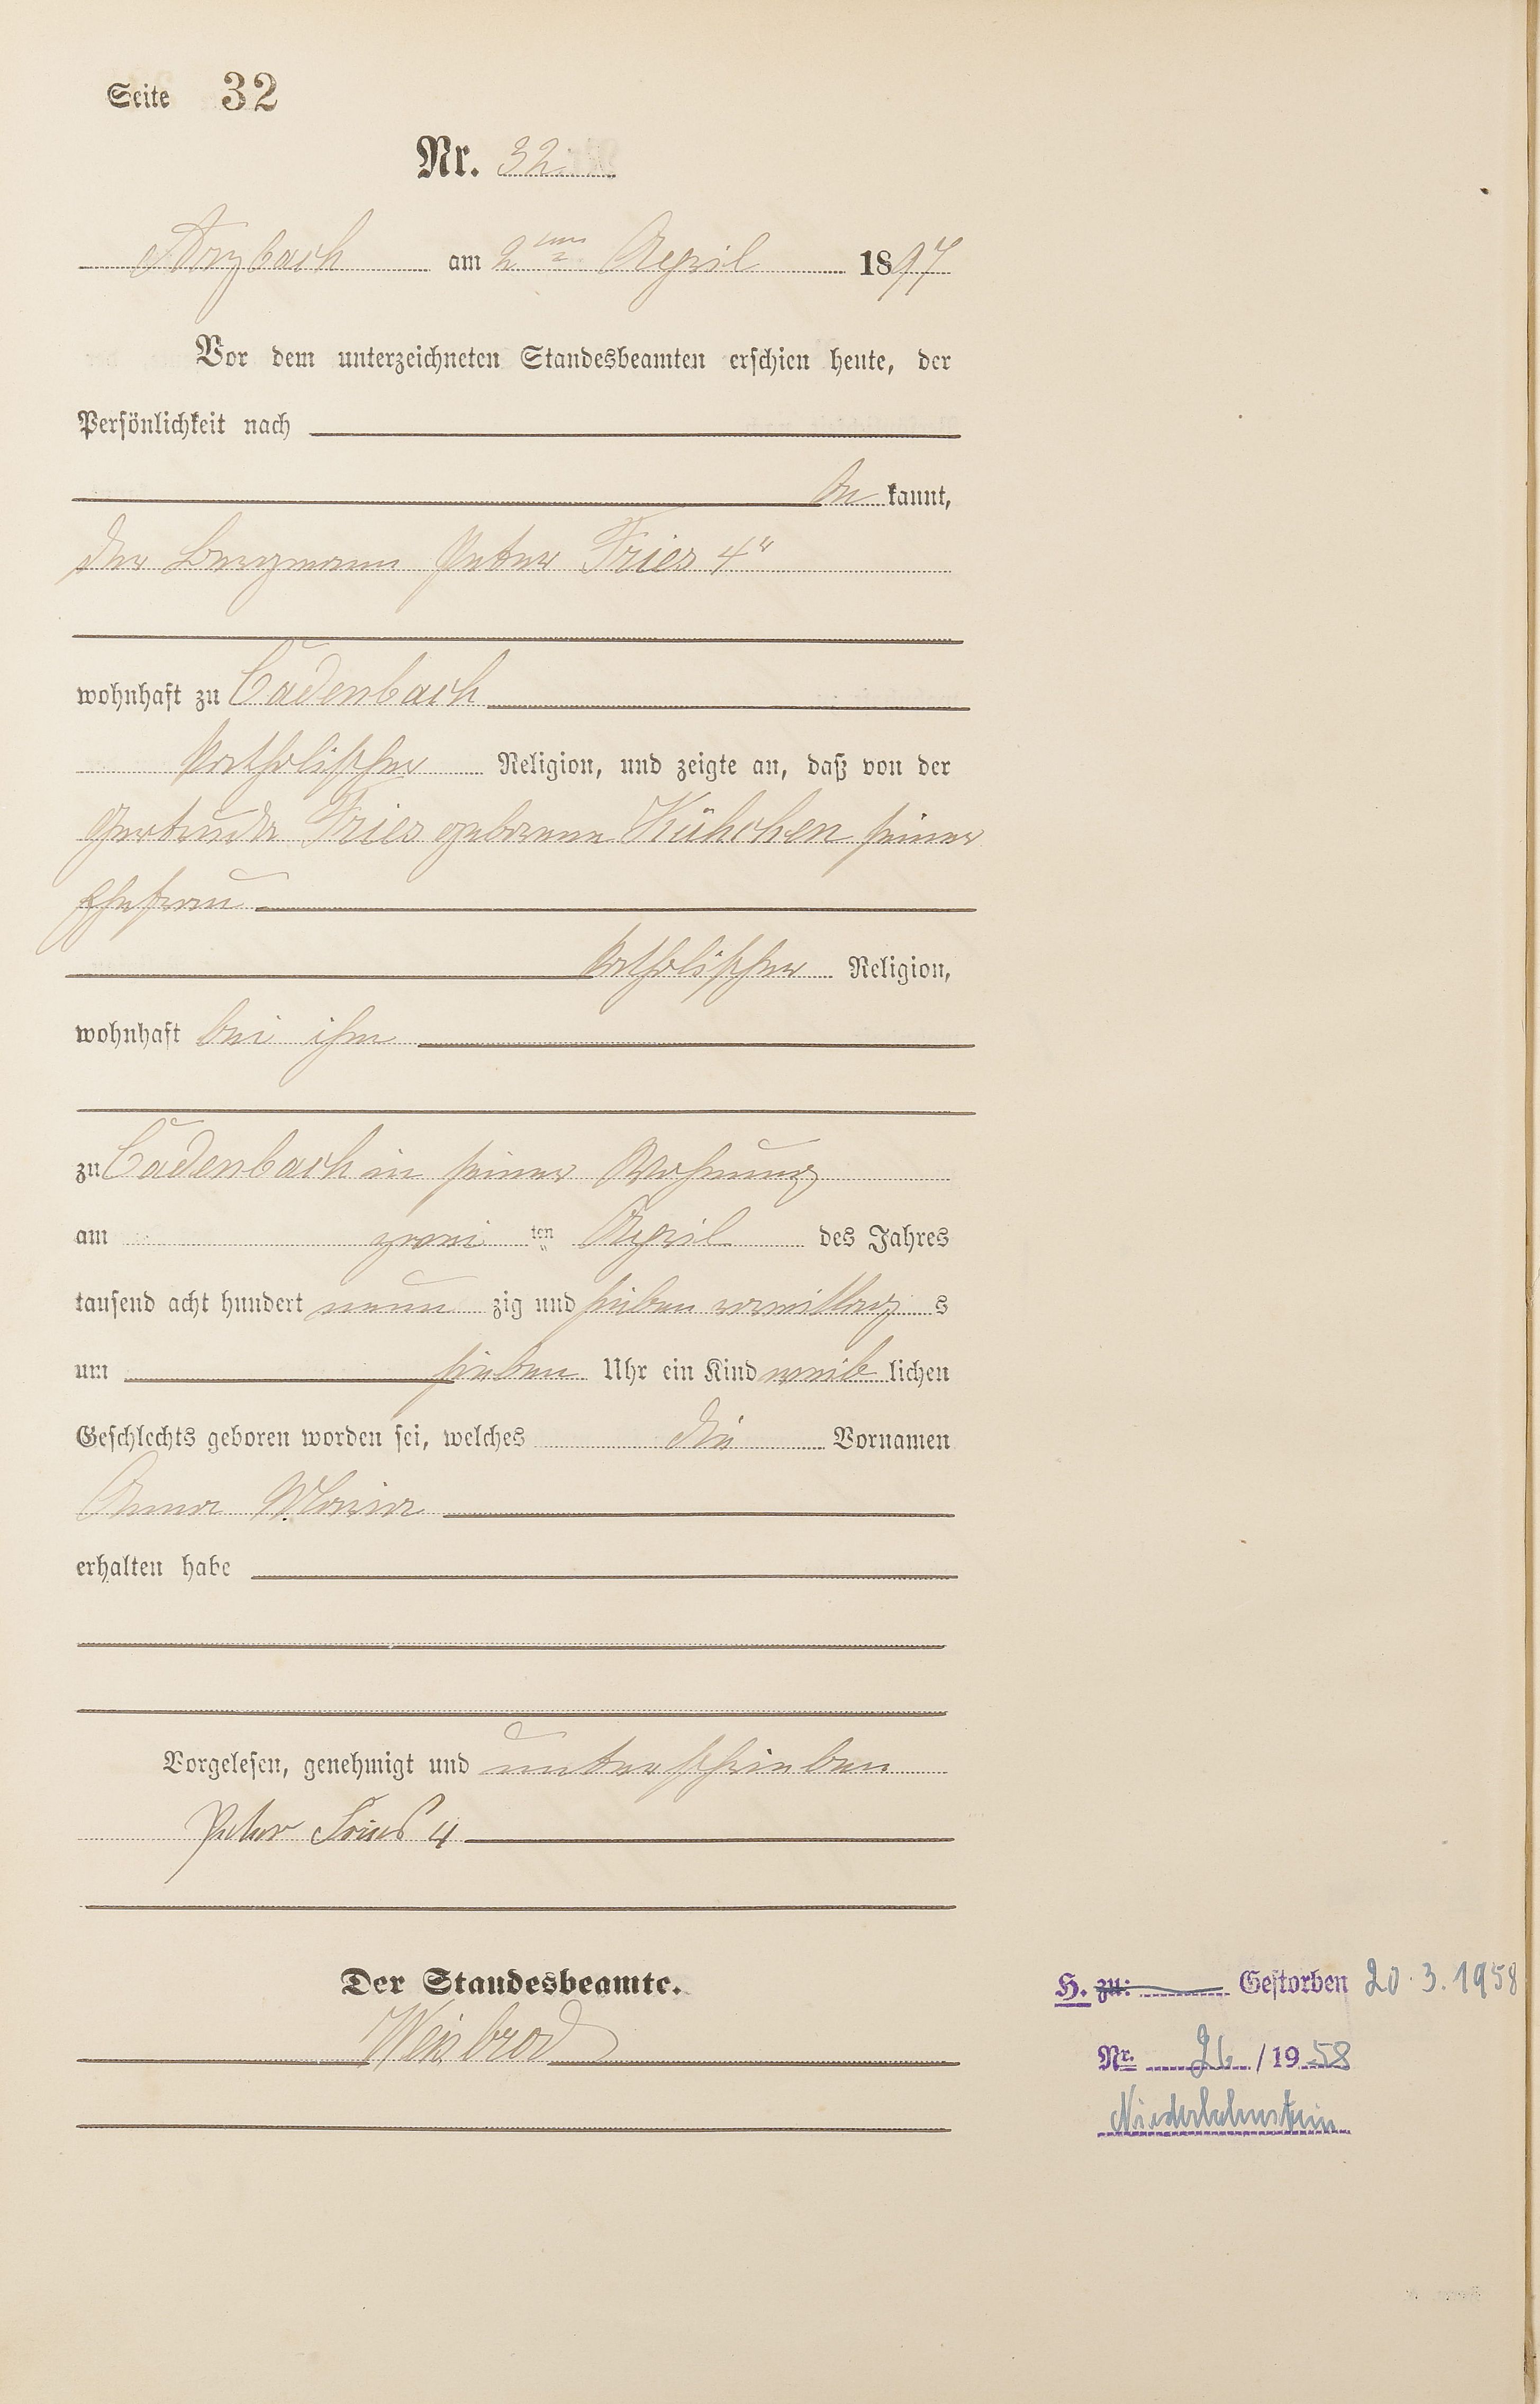 Seite 32
Nr. 32
Arzbach am 2ten April 1897
Vor dem unterzeichneten Standesbeamten erschien heute, der
Persönlichkeit nach
be kannt,
der Bergmann Peter Fries 4"
wohnhaft zu Cadenbach
katholischer Religion, und zeigte an, daß von der
Gertrude Fries geborene Kühchen seiner
Ehefrau
katholischer Religion,
wohnhaft bei ihm
zu Cadenbach in seiner Wohnung
am zwei ten April des Jahres
tausend acht hundert neun zig und sieben vormittag s
um sieben Uhr ein Kind weib lichen
Geschlechts geboren worden sei, welches die Vornamen
Anna Maria
erhalten habe
Vorgelesen, genehmigt und unterschrieben
Peter Fries 4
Der Standesbeamte.
Weisbrod
H. zu: Gestorben 20.3.1958
Nr. 26 / 1958
Niederlahnstein